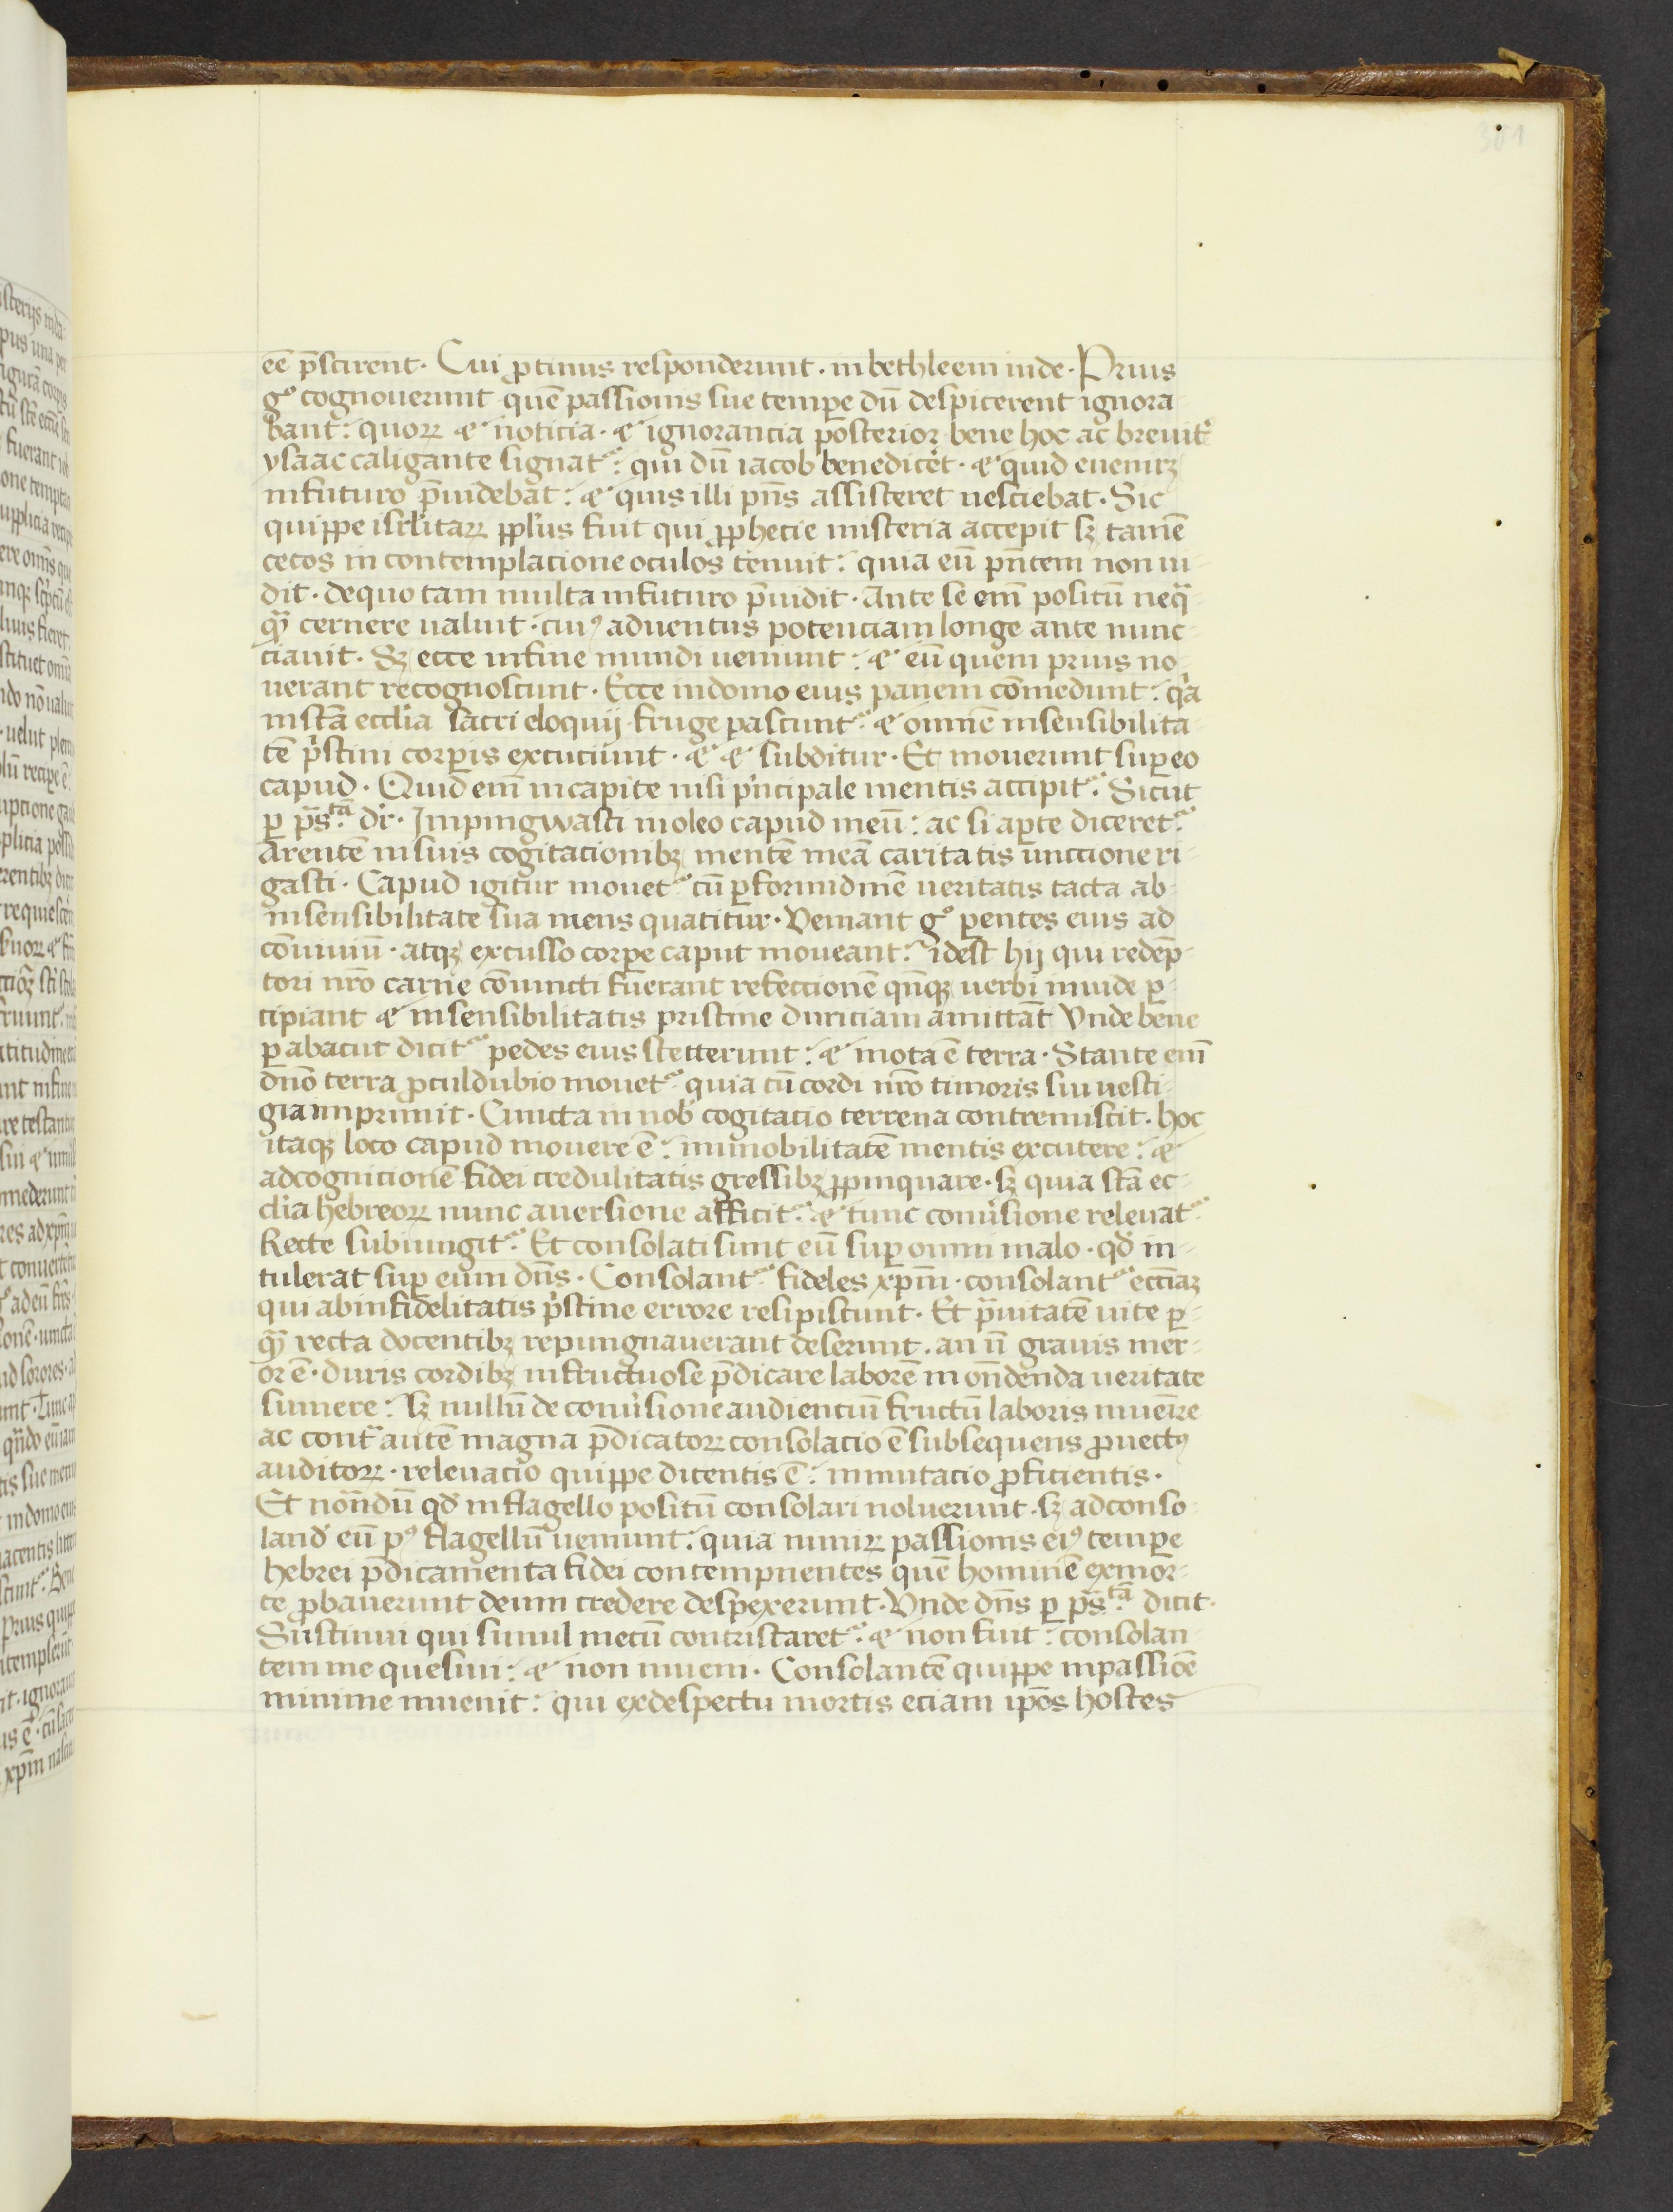 301
eē p̄scirent. Cui ꝓtinus responderunt. in bethleem iude. Prius
gͦ cognouerunt quē passionis sue tempe dū despicerent ignora
bant: quoꝝ ⁊ noticia. ⁊ ignorancia posterior bene hoc ac breuit̉
ysaac caligante signat᷑: qui dū iacob benedicēt. ⁊ quid eueniꝝ
in futuro p̄uidebat: ⁊ quis illi pn̄s assisteret nesciebat. Sic
quippe isrl̓itaꝝ ppl̓us fuit qui ꝓphecie misteria accepit sꝫ tamē
cecos in contemplacione oculos tenuit: quia eū pn̄tem non ui-
dit. de quo tam multa in futuro p̄uidit. Ante se em̄ positū neq̄
qͣꝫ cernere ualuit. cuiꝰ aduentus potenciam longe ante nunc-
ciauit. Sꝫ ecce in fine mundi ueniunt: ⁊ eū quem prius no-
uerant recognoscunt. Ecce in domo eius panem cōmedunt: qͥa
in sc̄a eccl̓ia sacri eloquij fruge pascunt᷑ ⁊ omnē insensibilita-
tē pͥstini corꝑis excuciunt. ⁊ ⁊ subditur. Et mouerunt suꝑ eo
capud. Quid em̄ in capite nisi pͥncipale mentis accipit᷑. Sicut
ꝑ pš.tā dr̄. Impingwasti in oleo capud meū: ac si aꝑte diceret᷑
Arentē in suis cogitacionibꝫ mentē meā caritatis unctione ri-
gasti. Capud igitur mouet᷑ cū ꝑ formidinē ueritatis tacta ab-
insensibilitate sua mens quatitur. Veniant gͦ ꝑentes eius ad
cōuiuiū. atqꝫ excusso corꝑe caput moueant: idest hij qui redēp-
tori nr̄o carne cōiuncti fuerant refeccionē qn̄qꝫ uerbi in uide ꝑ-
cipiant ⁊ insensibilitatis pristine duriciam amittāt Vnde bene
ꝑ abacuc dicit᷑ pedes eius stetterunt: ⁊ mota ē terra. Stante em̄
dn̄o terra ꝓculdubio mouet᷑ quia cū cordi nr̄o timoris sui uesti-
gia imprimit. Cuncta in nob̓ cogitacio terrena contremiscit. hoc
itaqꝫ loco capud mouere ē: immobilitatē mentis excutere: ⁊
ad cognicionē fidei credulitatis gressibꝫ ꝓpinquare. sꝫ quia sc̄a ec-
cl̓ia hebreoꝝ nunc auersione afficit᷑ ⁊ tunc conu̓sione releuat᷑
Recte subiungit᷑. Et consolati sunt eū suꝑ omni malo. qd̓ in-
tulerat suꝑ eum dn̄s. Consolant᷑ fideles xp̄m. consolant᷑ eccl̓iaꝫ
qui ab infidelitatis pͥstine errore resipiscunt. Et pͣuitatē uite ꝑ-
qͣꝫ recta docentibꝫ repungnauerant deserunt. an n̄ grauis mer-
or ē. duris cordibꝫ infructuose p̄dicare laborē in on̄denda ueritate
sumere: sꝫ nullū de conu̓sione audienciū fructū laboris inuenire
ac contͣ autē magna p̄dicatoꝝ consolacio ē subsequens ꝓuectꝰ
auditoꝝ. releuacio quippe dicentis ē: inmutacio ꝓficientis.
Et nōndū qd̓ in flagello positū consolari noluerunt. sꝫ ad conso-
land̓ eū pꝰ flagellū ueniunt: quia nimiꝝ passionis eiꝰ tempe
hebrei p̄dicamenta fidei contempnentes quē hominē ex mor-
te ꝓbauerunt deum credere despexerunt. Vnde dn̄s ꝑ pš.tā dicit.
Sustinui qui simul mecū contristaret᷑ ⁊ non fuit: consolan-
tem me quesiui: ⁊ non inueni. Consolantē quippe in passiōe
minime inuenit: qui ex despectu mortis eciam ip̄os hostes